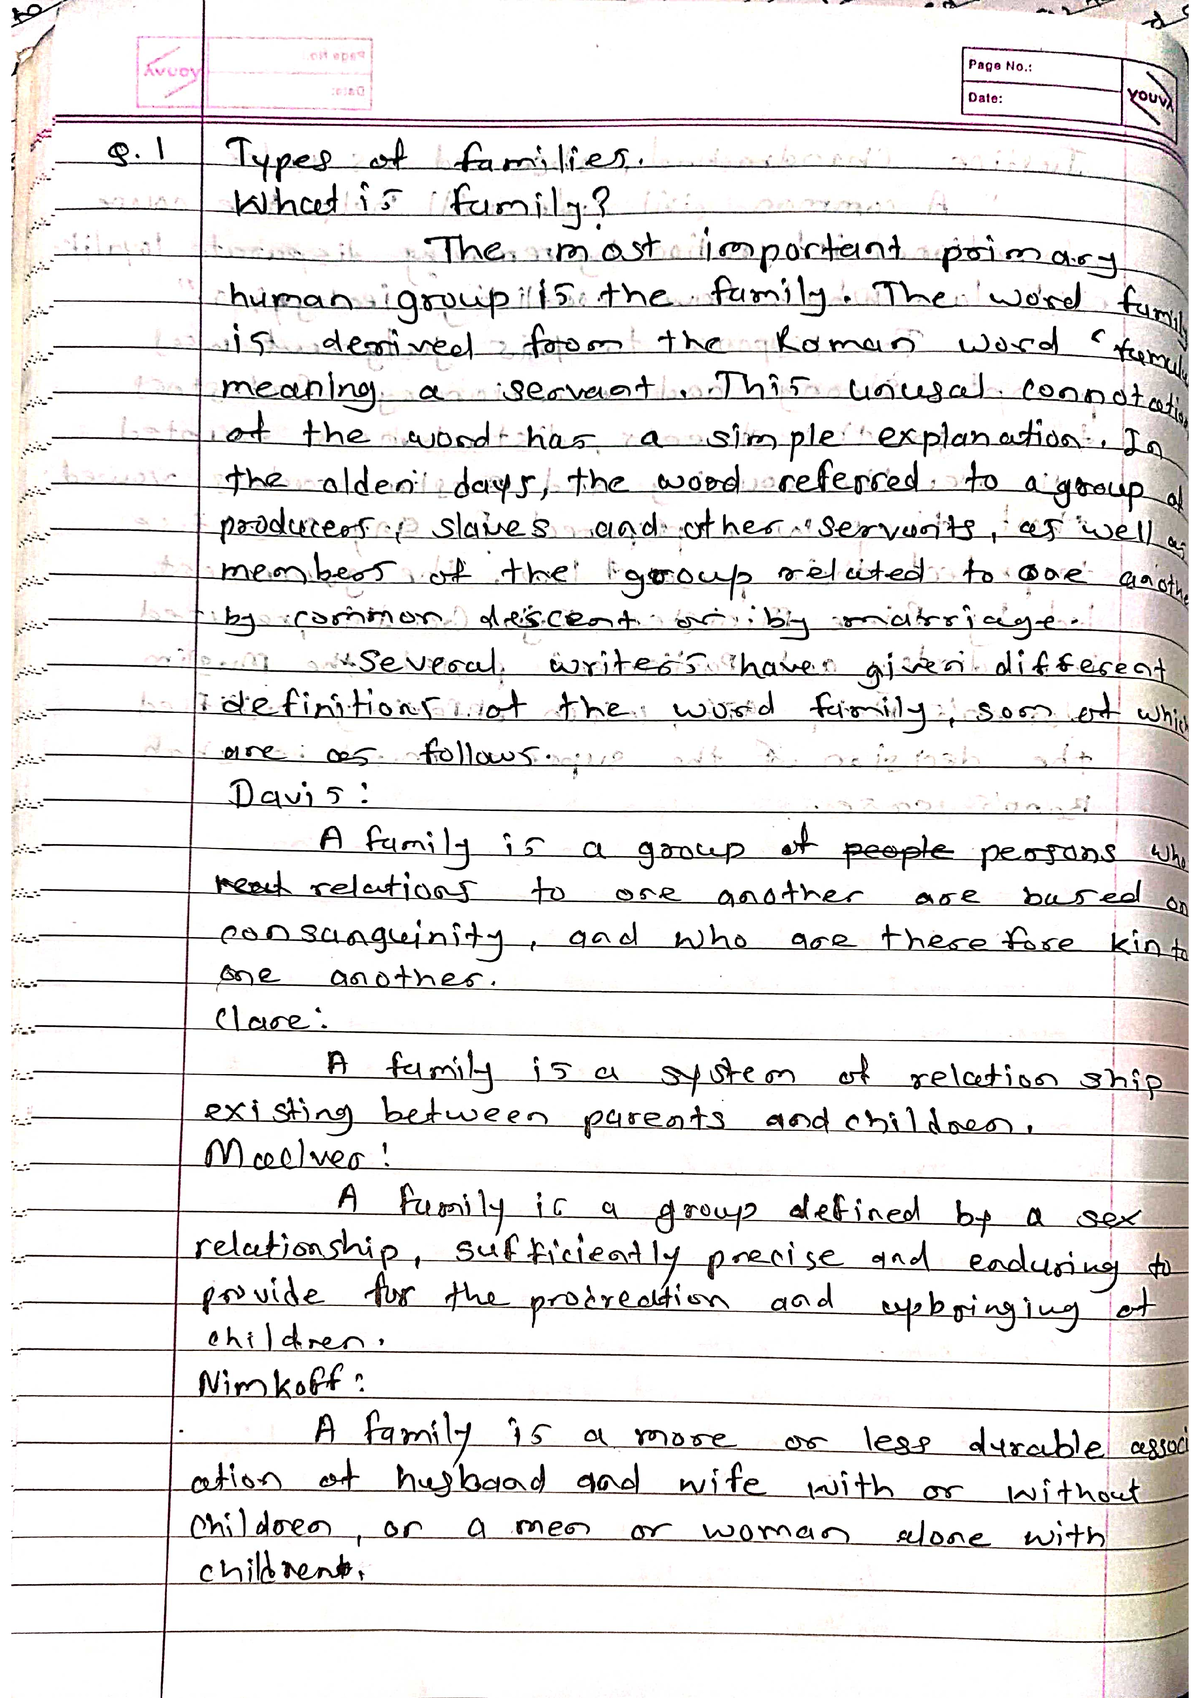 Page No.:
Date:
YOUVA
Q.1 Types of families.
What is family?
The most important primary
human group is the family. The word family
is derived from the Roman word 'famulu
meaning a servant. This unusal connotation
of the word has a simple explanation. In
the olden days, the word referred to a group of
producers, slaves and other servants, as well as
members of the group related to one anothe
by common descent or by matrriage.
Several writers have given different
definitions of the word family, som of which
are as follows.
Davis:
A family is a group of people persons who
relations to one another are based on
consanguinity, and who are therefore kin to
one another.
Clare:
A family is a system of relation ship
existing between parents and children.
MacIver:
A family is a group defined by a sex
relationship, sufficiently precise and enduring to
provide for the procreation and upbringing of
children.
Nimkoff:
A family is a more or less durable associ
ation of husband and wife with or without
children, or a men or woman alone with
children.